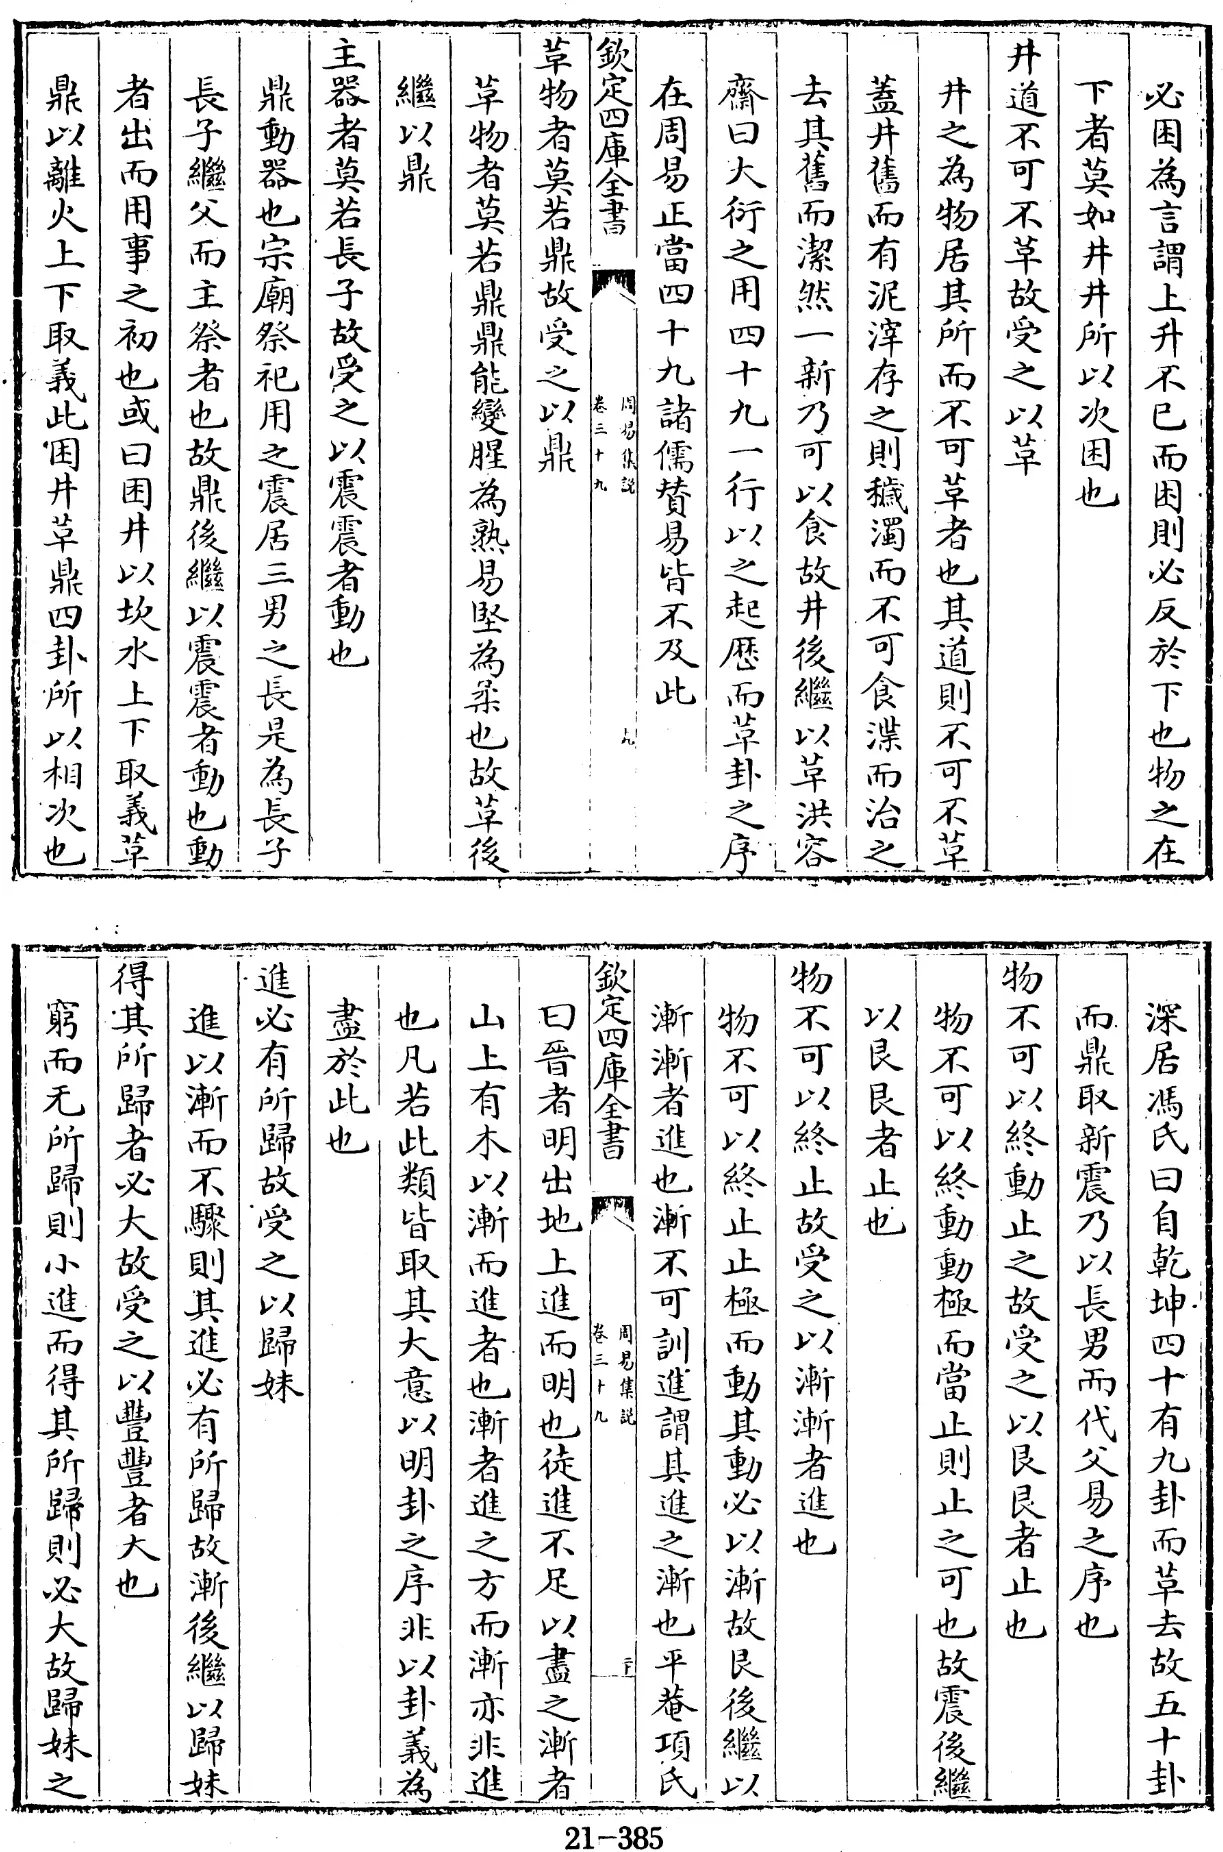 必困為言謂上升不已而困則必反於下也物之在
下者莫如井井所以次困也
井道不可不革故受之以革
井之為物居其所而不可革者也其道則不可不革
蓋井舊而有泥滓存之則穢濁而不可食渫而治之
去其舊而潔然一新乃可以食故井後繼以革洪容
齋曰大衍之用四十九一行以之起歷而革卦之序
在周易正當四十九諸儒賛易皆不及此
欽定四庫全書
周易集說
卷三十九
九
革物者莫若鼎故受之以鼎
革物者莫若鼎鼎能變腥為熟易堅為柔也故革後
繼以鼎
主器者莫若長子故受之以震震者動也
鼎動器也宗廟祭祀用之震居三男之長是為長子
長子繼父而主祭者也故鼎後繼以震震者動也動
者出而用事之初也或曰困井以坎水上下取義革
鼎以離火上下取義此困井革鼎四卦所以相次也
深居馮氏曰自乾坤四十有九卦而革去故五十卦
而鼎取新震乃以長男而代父易之序也
物不可以終動止之故受之以艮艮者止也
物不可以終動動極而當止則止之可也故震後繼
以艮艮者止也
物不可以終止故受之以漸漸者進也
物不可以終止止極而動其動必以漸故艮後繼以
漸漸者進也漸不可訓進謂其進之漸也平菴項氏
欽定四庫全書
周易集說
卷三十九
二十
曰晉者明出地上進而明也徒進不足以盡之漸者
山上有木以漸而進者也漸者進之方而漸亦非進
也凡若此類皆取其大意以明卦之序非以卦義為
盡於此也
進必有所歸故受之以歸妹
進以漸而不驟則其進必有所歸故漸後繼以歸妹
得其所歸者必大故受之以豐豐者大也
窮而无所歸則小進而得其所歸則必大故歸妹之
21-385